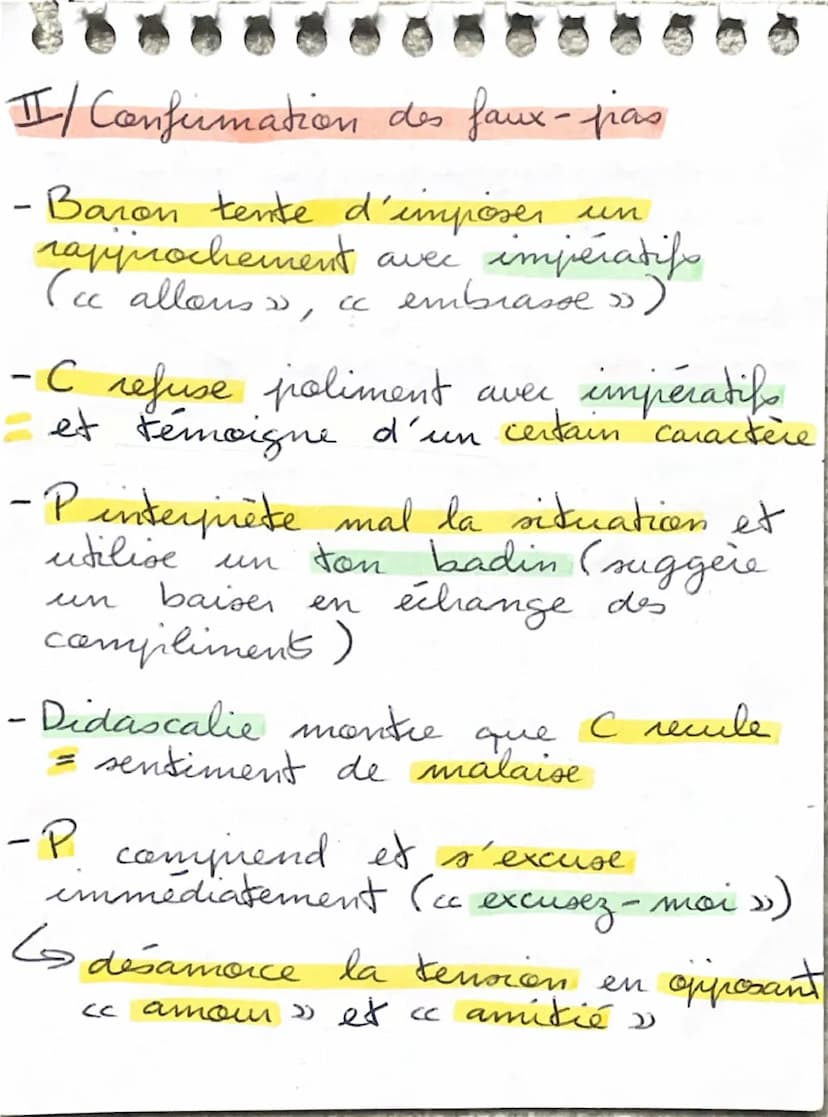 II/ Confirmation des faux-pas
- Baron tente d'imposer un
rapprochement avec impératifs
(« allons », « embrasse »)
- C refuse poliment avec impératifs
= et témoigne d'un certain caractère
- P interprète mal la situation et
utilise un ton badin (suggère
un baiser en échange des
compliments)
- Didascalie montre que C recule
= sentiment de malaise
- P comprend et s'excuse
immédiatement (« excusez-moi »)
↳ désamorce la tension en opposant
« amour » et « amitié »